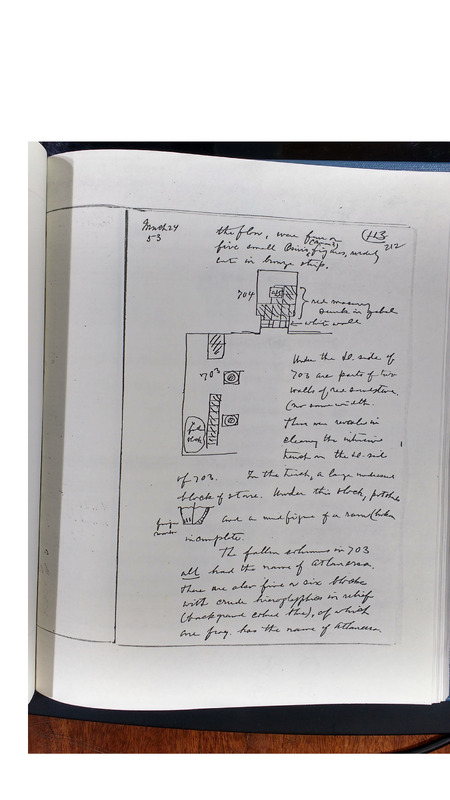 March 24
53
113
212
the floor, were four or
five small Osiris figures, rudely
cut in bronze strip.
704
red masonry
sunk in
white wall
703
Under the so. side of
703 are parts of two
walls of red sandstone.
These were revealed in
clearing the
trench on the so. side
of 703. In the trench, a large
block of stone. Under this block,
and a mud figure of a ram (broken
incomplete.
The fallen columns in 703
all had the name of Atlanersa.
There are also five or six blocks
with crude hieroglyphics in relief
(background colored blue), of which
one frag. has the name of Atlanersa.